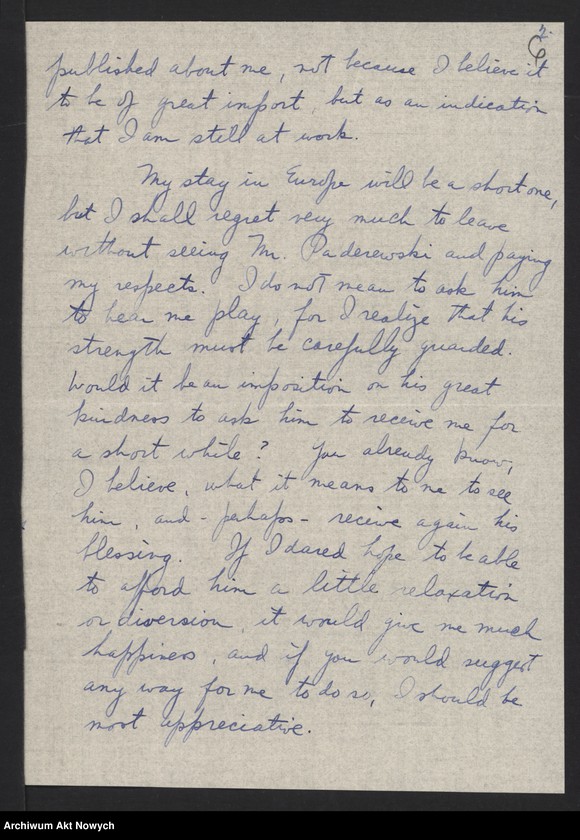 2.
6
published about me, not because I believe it
to be of great import, but as an indication
that I am still at work.
My stay in Europe will be a short one,
but I shall regret very much to leave
without seeing Mr. Paderewski and paying
my respects. I do not mean to ask him
to hear me play, for I realize that his
strength must be carefully guarded.
Would it be an imposition on his great
kindness to ask him to receive me for
a short while? You already know,
I believe, what it means to me to see
him, and - perhaps - receive again his
blessing. If I dared hope to be able
to afford him a little relaxation
or diversion, it would give me much
happiness, and if you would suggest
any way for me to do so, I should be
most appreciative.
Archiwum Akt Nowych